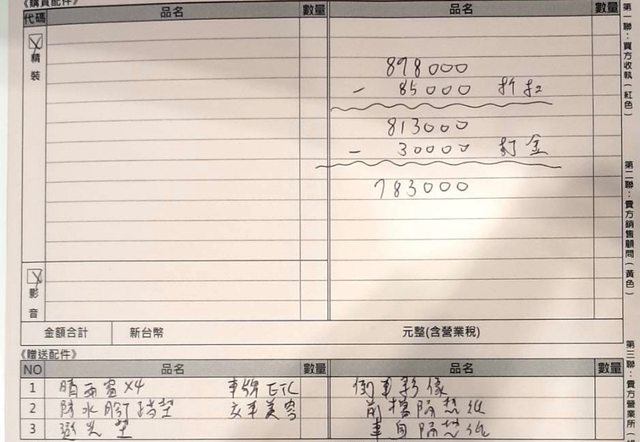 《購買配件》
代碼 品名 數量 品名 數量
精裝
898000
- 85000 折扣
813000
- 30000 訂金
783000
影音
金額合計 新台幣 元整(含營業稅)
《贈送配件》
NO 品名 數量 品名 數量
1 晴雨窗x4 車牌ETC 倒車影像
2 防水腳踏墊 女車美容 前擋隔熱紙
3 避光墊 車身隔熱紙
第一聯：買方收執(紅色)
第二聯：貴方銷售顧問(黃色)
第三聯：貴方營業所(